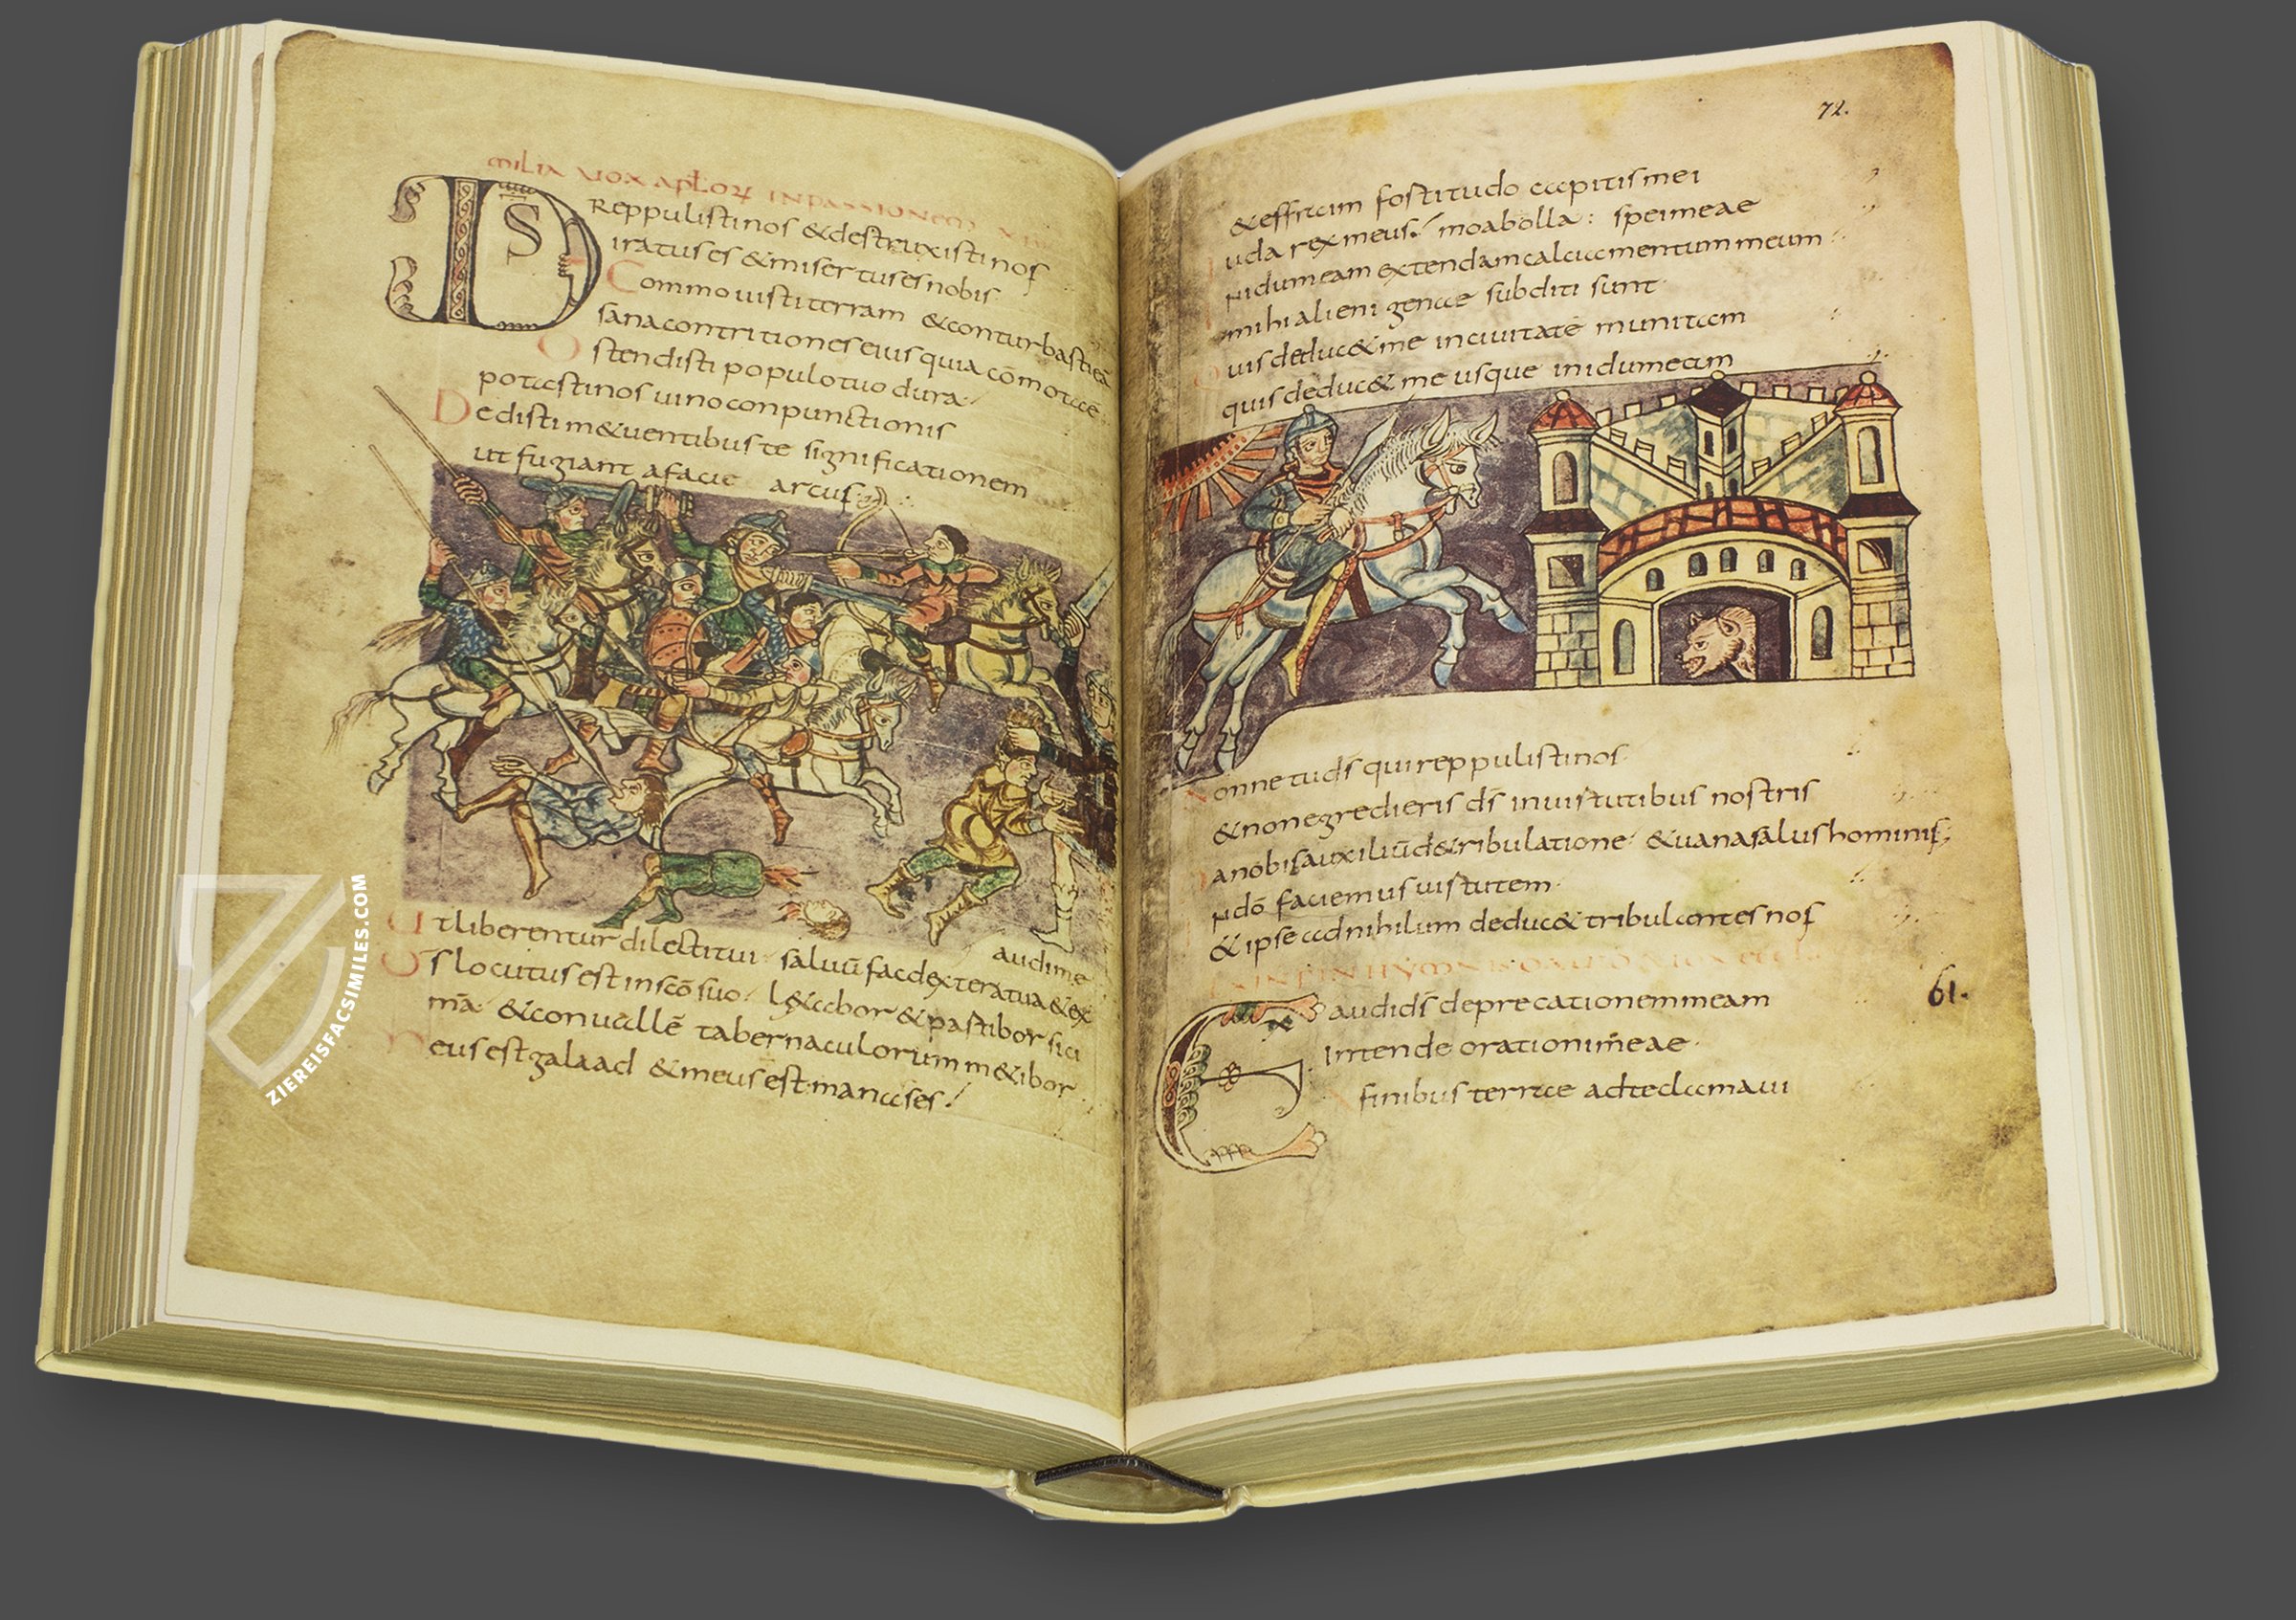 milia vox aptor in passionem
DS
Reppulistinos &destruxistinos
iratus es &misertuses nobis
Commouisti terram &conturbasti eā
sana contritiones eius quia cōmota ē
Ostendisti populo tuo dura
potastinos uino conpunctionis
Dedisti m&uentibus te significationem
ut fugiant a facie arcus
Ut liberentur dilecti tui saluū fac dextera tua &ex
audi me
Ds locutus est in scō suo l&abor &partibor sici
mā &conuallē tabernaculorum m&ibor
Meus est galaad &meus est manases
72.
&effraim fortitudo capitis mei
iuda rex meus moab olla spei meae
In idumeam extendam calciamentum meum
mihi alieni genae subditi sunt
Quis deduc& me in ciuitatē munitam
quis deduc& me usque in idumeam
Nonne tu ds qui reppulistinos
&non egredieris ds in uirtutibus nostris
Da nobis auxiliū de tribulatione &uana salus hominis
In dō faciemus uirtutem
&ipse ad nihilum deduc& tribulantes nos
61.
Exaudi ds deprecationem meam
Intende orationi meae
A finibus terrae ad te clamaui
ZIEREISFACSIMILES.COM